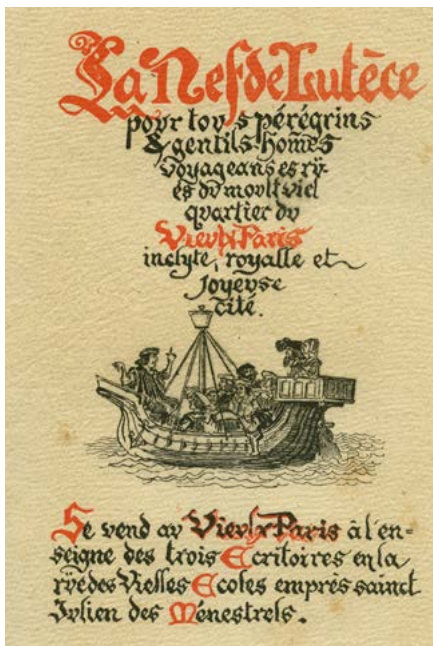 La Nef de Lutèce
povr tovs pérégrins
& gentils-hom̃es
voyageans es rü-
es dv movlt viel
qvartier dv
Vievlx Paris
inclyte, royalle et
joyevse
cité.
Se vend av Vievlx Paris à l'en=
seigne des trois Ecritoires en la
rüe des Vielles Ecoles emprés sainct
Jvlien des Ménestrels.